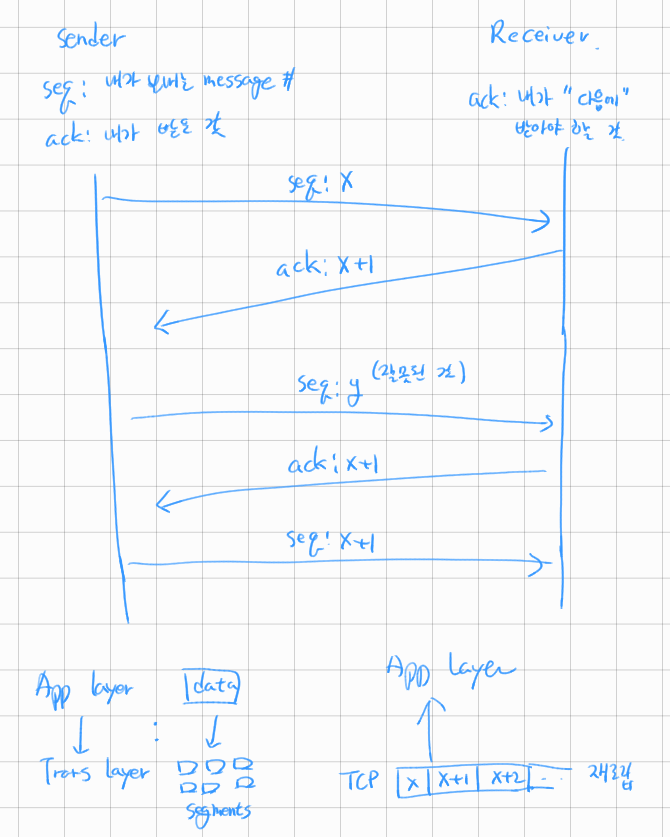 Sender
seq: 내가 보내는 message #
ack: 내가 받을 것
Receiver.
ack: 내가 "다음에"
받아야 할 것
seq: X
ack: X+1
seq: y (잘못된 것)
ack: X+1
seq: X+1
App layer
data
Trans layer
segments
App Layer
TCP X X+1 X+2 ... 재조립